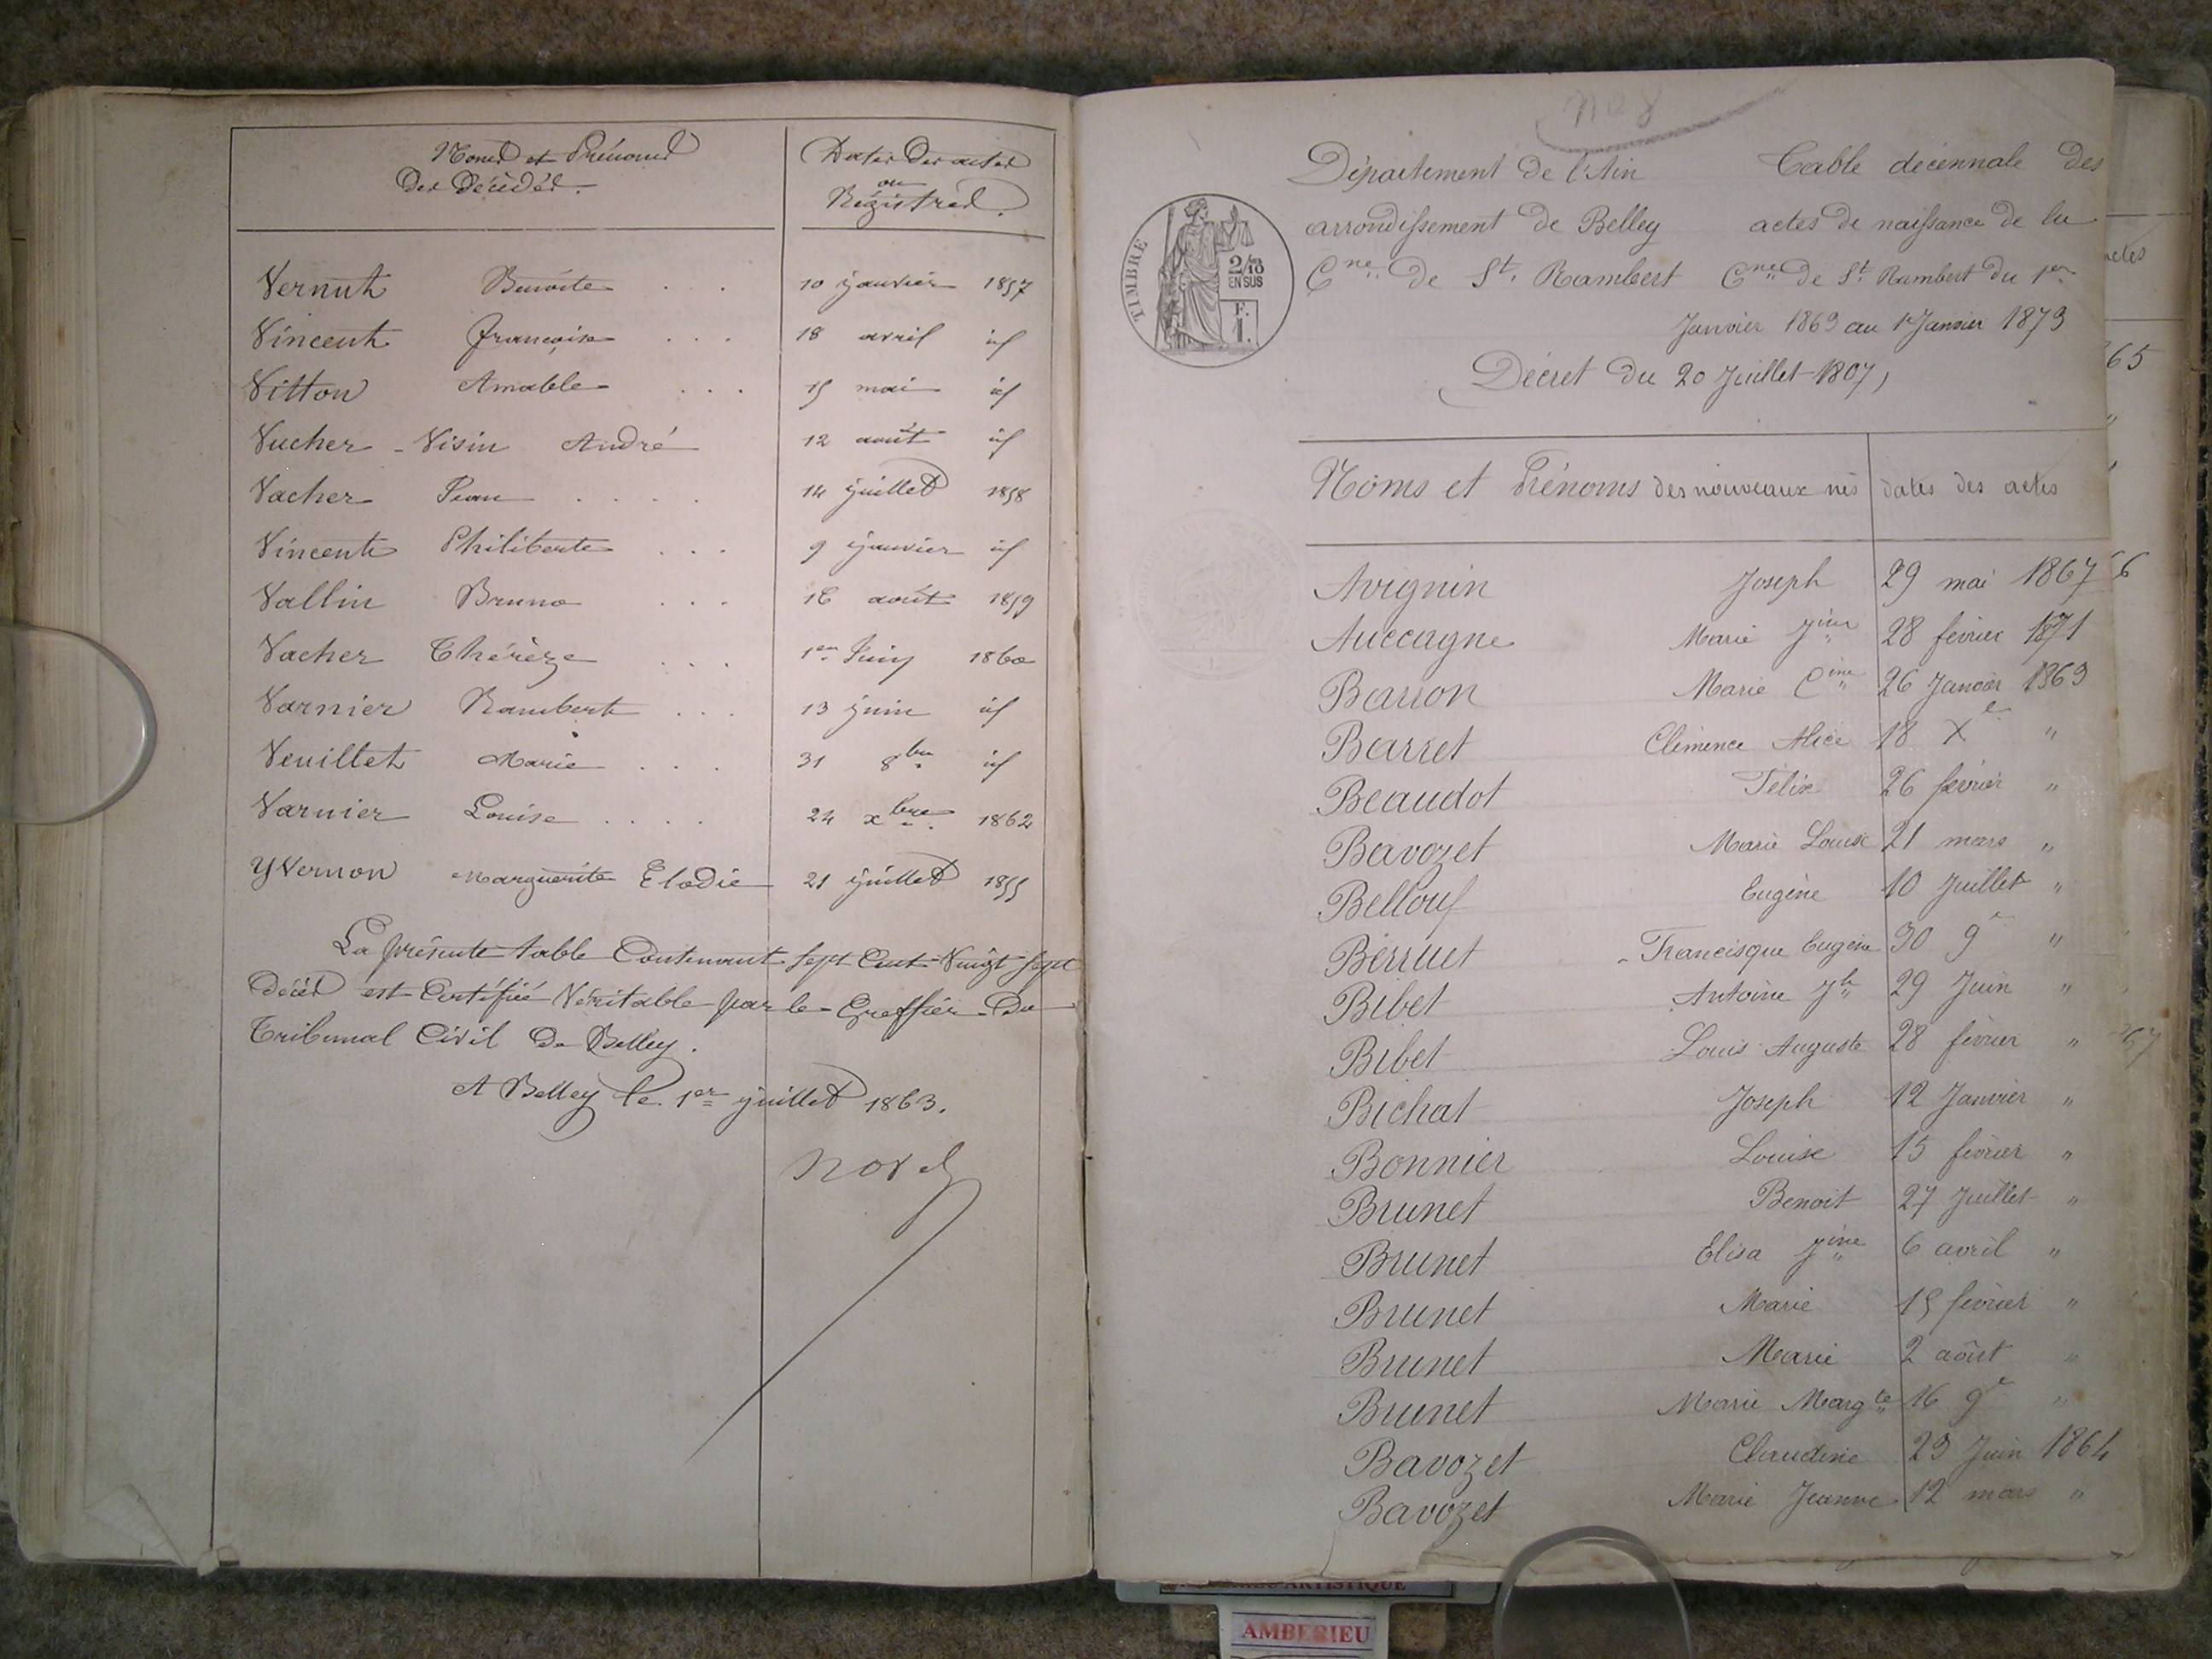 Noms et Prénoms
Des Décédés.
Dates Des actes
ou
Régistres.
Vernut Benoite . . . 10 janvier 1857
Vincent Françoise . . . 18 avril id
Vitton Amable . . . 15 mai id
Vucher - Visin André 12 août id
Vacher Jean . . . . 14 juillet 1858
Vincent Philiberte . . . 9 janvier id
Vallin Bruno . . . 16 août 1859
Vacher Thérèze . . . 1er Juin 1860
Varnier Rambert . . . 13 juin id
Veuillet Marie . . . 31 8bre id
Varnier Louise . . . . 24 xbre 1862
YVernon Marguerite Elodie 21 juillet 1855
La présente table Contenant Sept Cent Vingt Sept
Décès est Certifiée Véritable par le Greffier Du
Tribunal Civil De Belley.
A Belley le 1er juillet 1863.
No 8
TIMBRE
2/10
EN SUS
F.
1.
Département de l'Ain
arrondissement de Belley
Cne de St. Rambert
Table décennale des
actes de naissance de la
Cne de St Rambert du 1er
Janvier 1863 au 1er Janvier 1873
Décret du 20 Juillet 1807,
Noms et Prénoms des nouveaux nés dates des actes
Avignin Joseph 29 mai 1867
Auccagne Marie Jine 28 février 1871
Barron Marie Cine 26 Janvier 1863
Barret Clémence Alice 18 Xe "
Beaudot Félix 26 février "
Bavozet Marie Louise 21 mars "
Bellouf Eugène 10 Juillet "
Berruet Francisque Eugène 30 9e "
Bibet Antoine Jh 29 Juin "
Bibet Louis Auguste 28 février "
Bichat Joseph 12 Janvier "
Bonnier Louise 15 février "
Brunet Benoit 27 Juillet "
Brunet Elisa Jine 6 avril "
Brunet Marie 15 février "
Brunet Marie 2 août "
Brunet Marie Margte 16 9e "
Bavozet Claudine 23 Juin 1864
Bavozet Marie Jeanne 12 mars "
actes
65
6
67
ARTISTIQUE
AMBERIEU